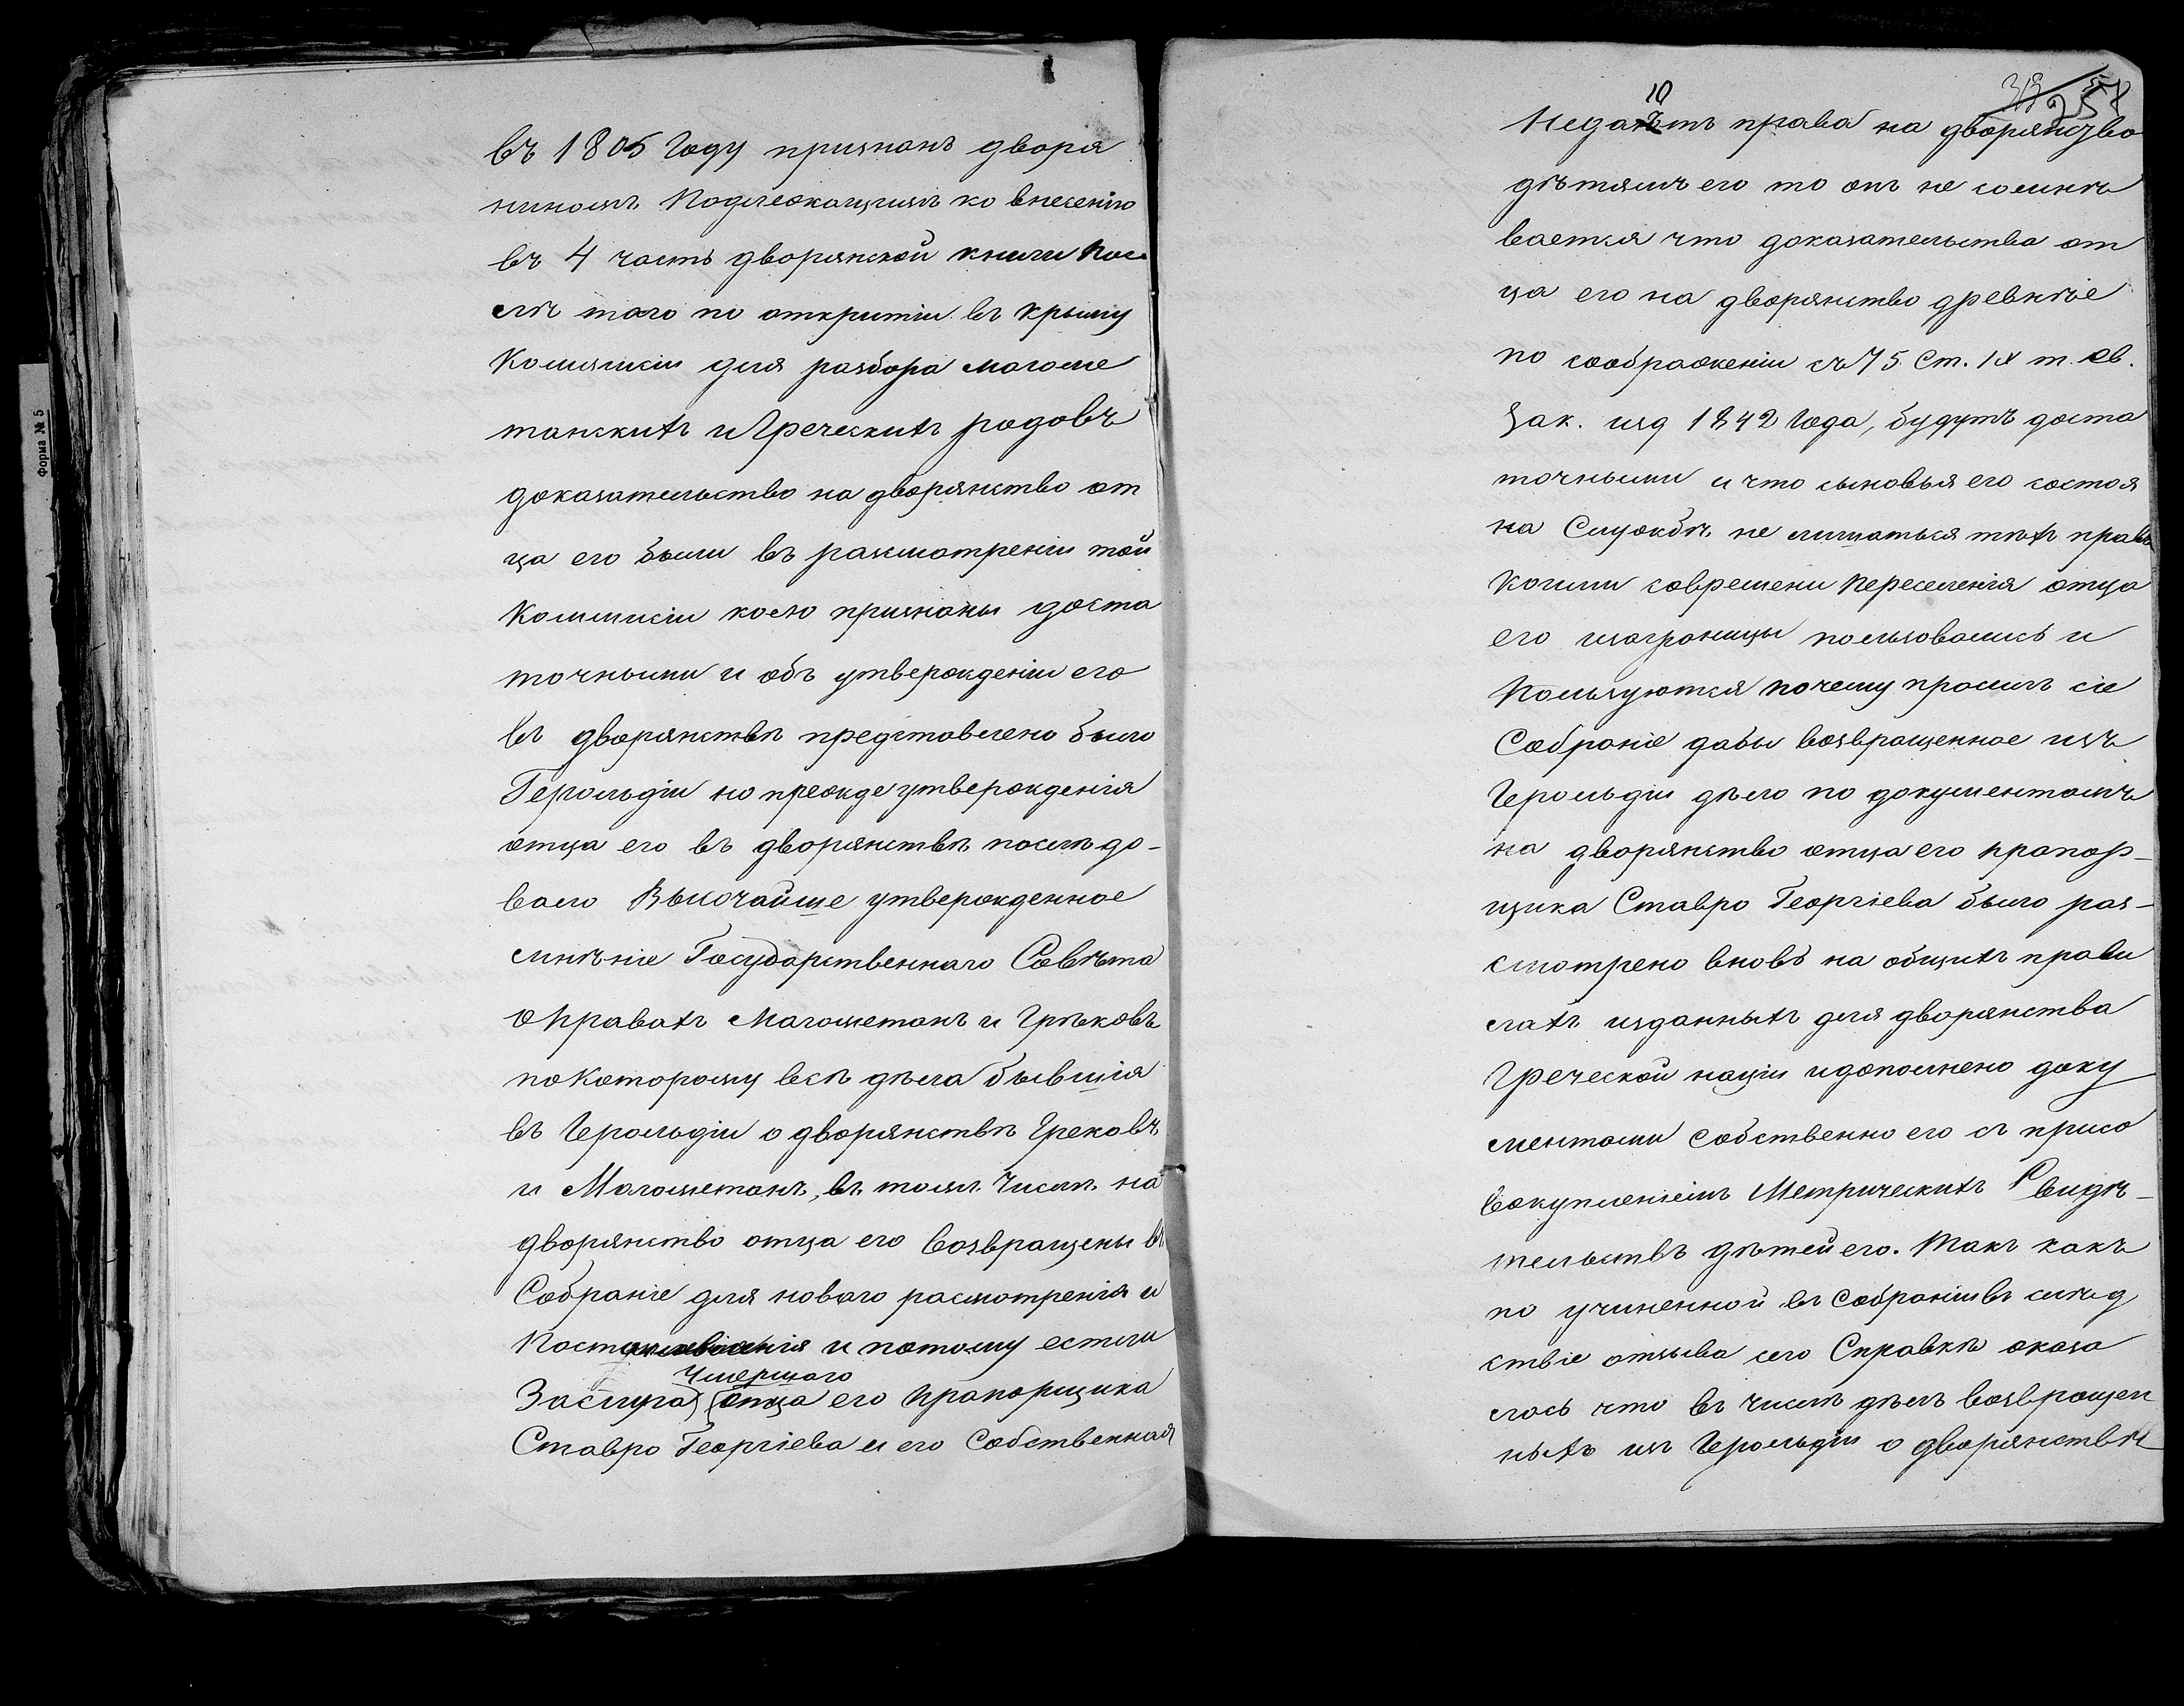 въ 1805 году признанъ дворя
ниномъ подлежащимъ ко внесенію
въ 4 часть дворянской книги пос
лѣ того по открытіи въ Крыму
Комисiи для разбора магоме
танскихъ и Греческихъ родовъ
доказательство на дворянство от
ца его были въ разсмотреніи той
Коммисіи коею признаны доста
точными и объ утвержденіи его
въ дворянствѣ представлено было
Герольдіи но прежде утвержденія
отца его въ дворянствѣ послѣдо-
вало Высочайше утвержденное
мнѣніе Государственнаго Совѣта
о правахъ Магометанъ и Грѣковъ
по которому всѣ дѣла бывшія
въ Герольдіи о дворянствѣ Грековъ
и Магометанъ, въ томъ числѣ на
дворянство отца его возвращены въ
Собраніе для новаго расмотренія и
постановленія и потому естли
Умершаго
Заслуга отца его прапорщика
Ставро Георгіева и его собственная
38 258
10
Недаютъ права на дворянство
дѣтямъ его то онъ не сомнѣ
вается что доказательства от
ца его на дворянство древнѣе
по соображеніи съ 75 Ст. IX т. св.
Зак. изд 1842 года, будутъ доста
точными и что сыновья его состоя
на Службѣ не лишаться тѣхъ правъ
коими современи переселенія отца
его изаграницы пользовались и
пользуются почему просилъ сіе
Собраніе дабы возвращенное изъ
Герольдіи дѣло по документамъ
на дворянство отца его прапор-
щика Ставро Георгіева было раз-
смотрено вновь на общихъ прави
лахъ изданныхъ для дворянства
Греческой націи и дополнено доку
ментами собственно его съ присо
вокупленіемъ Метрическихъ Свидѣ-
тельствъ дѣтей его. Такъ какъ
по учиненной въ Собраніи въ слѣд
ствіе отзыва сего Справкѣ оказа
лось что въ числѣ дѣлъ возвращен
ныхъ изъ Герольдіи о дворянствѣ
Форма № 5